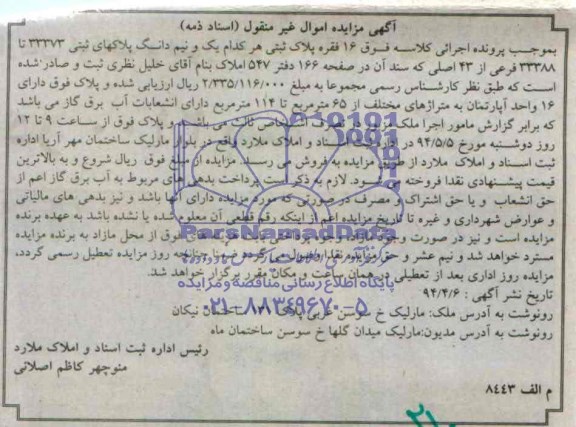 آگهی مزایده اموال غیر منقول (اسناد ذمه)
بموجب پرونده اجرائی کلاسه فوق ۱۶ فقره پلاک ثبتی هر کدام یک و نیم دانگ پلاکهای ثبتی ۳۳۳۷۳ تا
۳۳۳۸۸ فرعی از ۴۳ اصلی که سند آن در صفحه ۱۶۶ دفتر ۵۴۷ املاک بنام آقای خلیل نظری ثبت و صادر شده
است که طبق نظر کارشناس رسمی مجموعا به مبلغ ۲/۳۳۵/۱۱۶/۰۰۰ ریال ارزیابی شده و پلاک فوق دارای
۱۶ واحد آپارتمان به متراژهای مختلف از ۶۵ مترمربع تا ۱۱۴ مترمربع دارای انشعابات آب برق گاز می باشد
که برابر گزارش مامور اجرا ملک تصرف اشخاص ثالث می باشد و پلاک فوق از ساعت ۹ تا ۱۲
روز دوشنبه مورخ ۹۴/۵/۵ در اداره ثبت اسناد و املاک ملارد واقع در بلوار مارلیک ساختمان مهر آریا اداره
ثبت اسناد و املاک ملارد از طریق مزایده به فروش می رسد. مزایده از مبلغ فوق ریال شروع و به بالاترین
قیمت پیشنهادی نقدا فروخته می شود. لازم به ذکر است پرداخت بدهی های مربوط به آب برق گاز اعم از
حق انشعاب و یا حق اشتراک و مصرف در صورتی که مورد مزایده دارای آنها باشد و نیز بدهی های مالیاتی
و عوارض شهرداری و غیره تا تاریخ مزایده اعم از اینکه رقم قطعی آن معلوم شده یا نشده باشد به عهده برنده
مزایده است و نیز در صورت وجود مازاد، وجوه پرداختی بابت هزینه های فوق از محل مازاد به برنده مزایده
مسترد خواهد شد و نیم عشر و حق مزایده نقدا وصول می گردد ضمنا چنانچه روز مزایده تعطیل رسمی گردد،
مزایده روز اداری بعد از تعطیلی در همان ساعت و مکان مقرر برگزار خواهد شد.
تاریخ نشر آگهی : ۹۴/۴/۶
رونوشت به آدرس ملک: مارلیک خ سوسن غربی پلاک ساختمان نیکان
رونوشت به آدرس مدیون: مارلیک میدان گلها خ سوسن ساختمان ماه
رئیس اداره ثبت اسناد و املاک ملارد
منوچهر کاظم اصلانی
م الف ۸۴۴۳
ParsNamadData
پایگاه اطلاع رسانی مناقصه و مزایده
۰۲۱-۸۸۳۴۹۶۷۰-۵